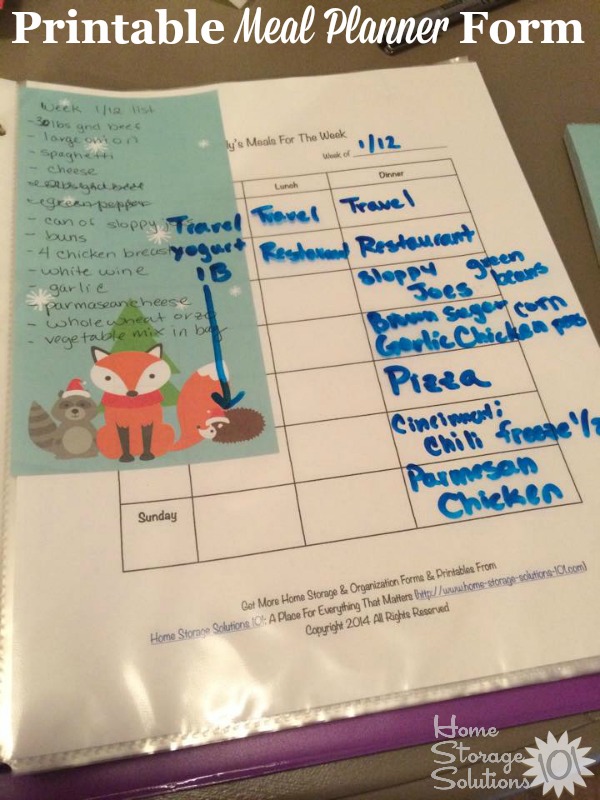 Printable Meal Planner Form
Week 1/12 list
- 3 lbs grd beef
- large onion
- spaghetti
- cheese
- green pepper
- can of sloppy
- buns
- 4 chicken breas
- white wine
garlic
parmasean cheese
- whole wheat orzo
- vegetable mix in bag
ly's Meals For The Week
Week of 1/12
Lunch Dinner
Travel Travel Travel
yogurt Restaurant Restaurant
1B
Sloppy Joes green beans
Brown Sugar Garlic Chicken corn peas
Pizza
Cincinnati Chili freeze 1/2
Parmesan Chicken
Sunday
Get More Home Storage & Organization Forms & Printables From
Home Storage Solutions 101: A Place For Everything That Matters (http://www.home-storage-solutions-101.com)
Copyright 2014 All Rights Reserved
Home
Storage
Solutions 101